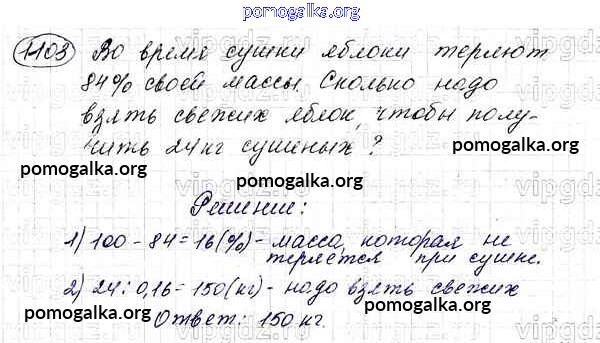 pomogalka.org
1103 Во время сушки яблоки теряют
84% своей массы. Сколько надо
взять свежих яблок, чтобы полу-
pomogalka.org pomogalka.org
чить 24 кг сушеных?
pomogalka.org
Решение:
1) 100 - 84 = 16 (%) - масса, которая не
теряется при сушке.
pomogalka.org
2) 24 : 0,16 = 150 (кг) - надо взять свежих
pomogalka.org pomogalka.org
Ответ: 150 кг.